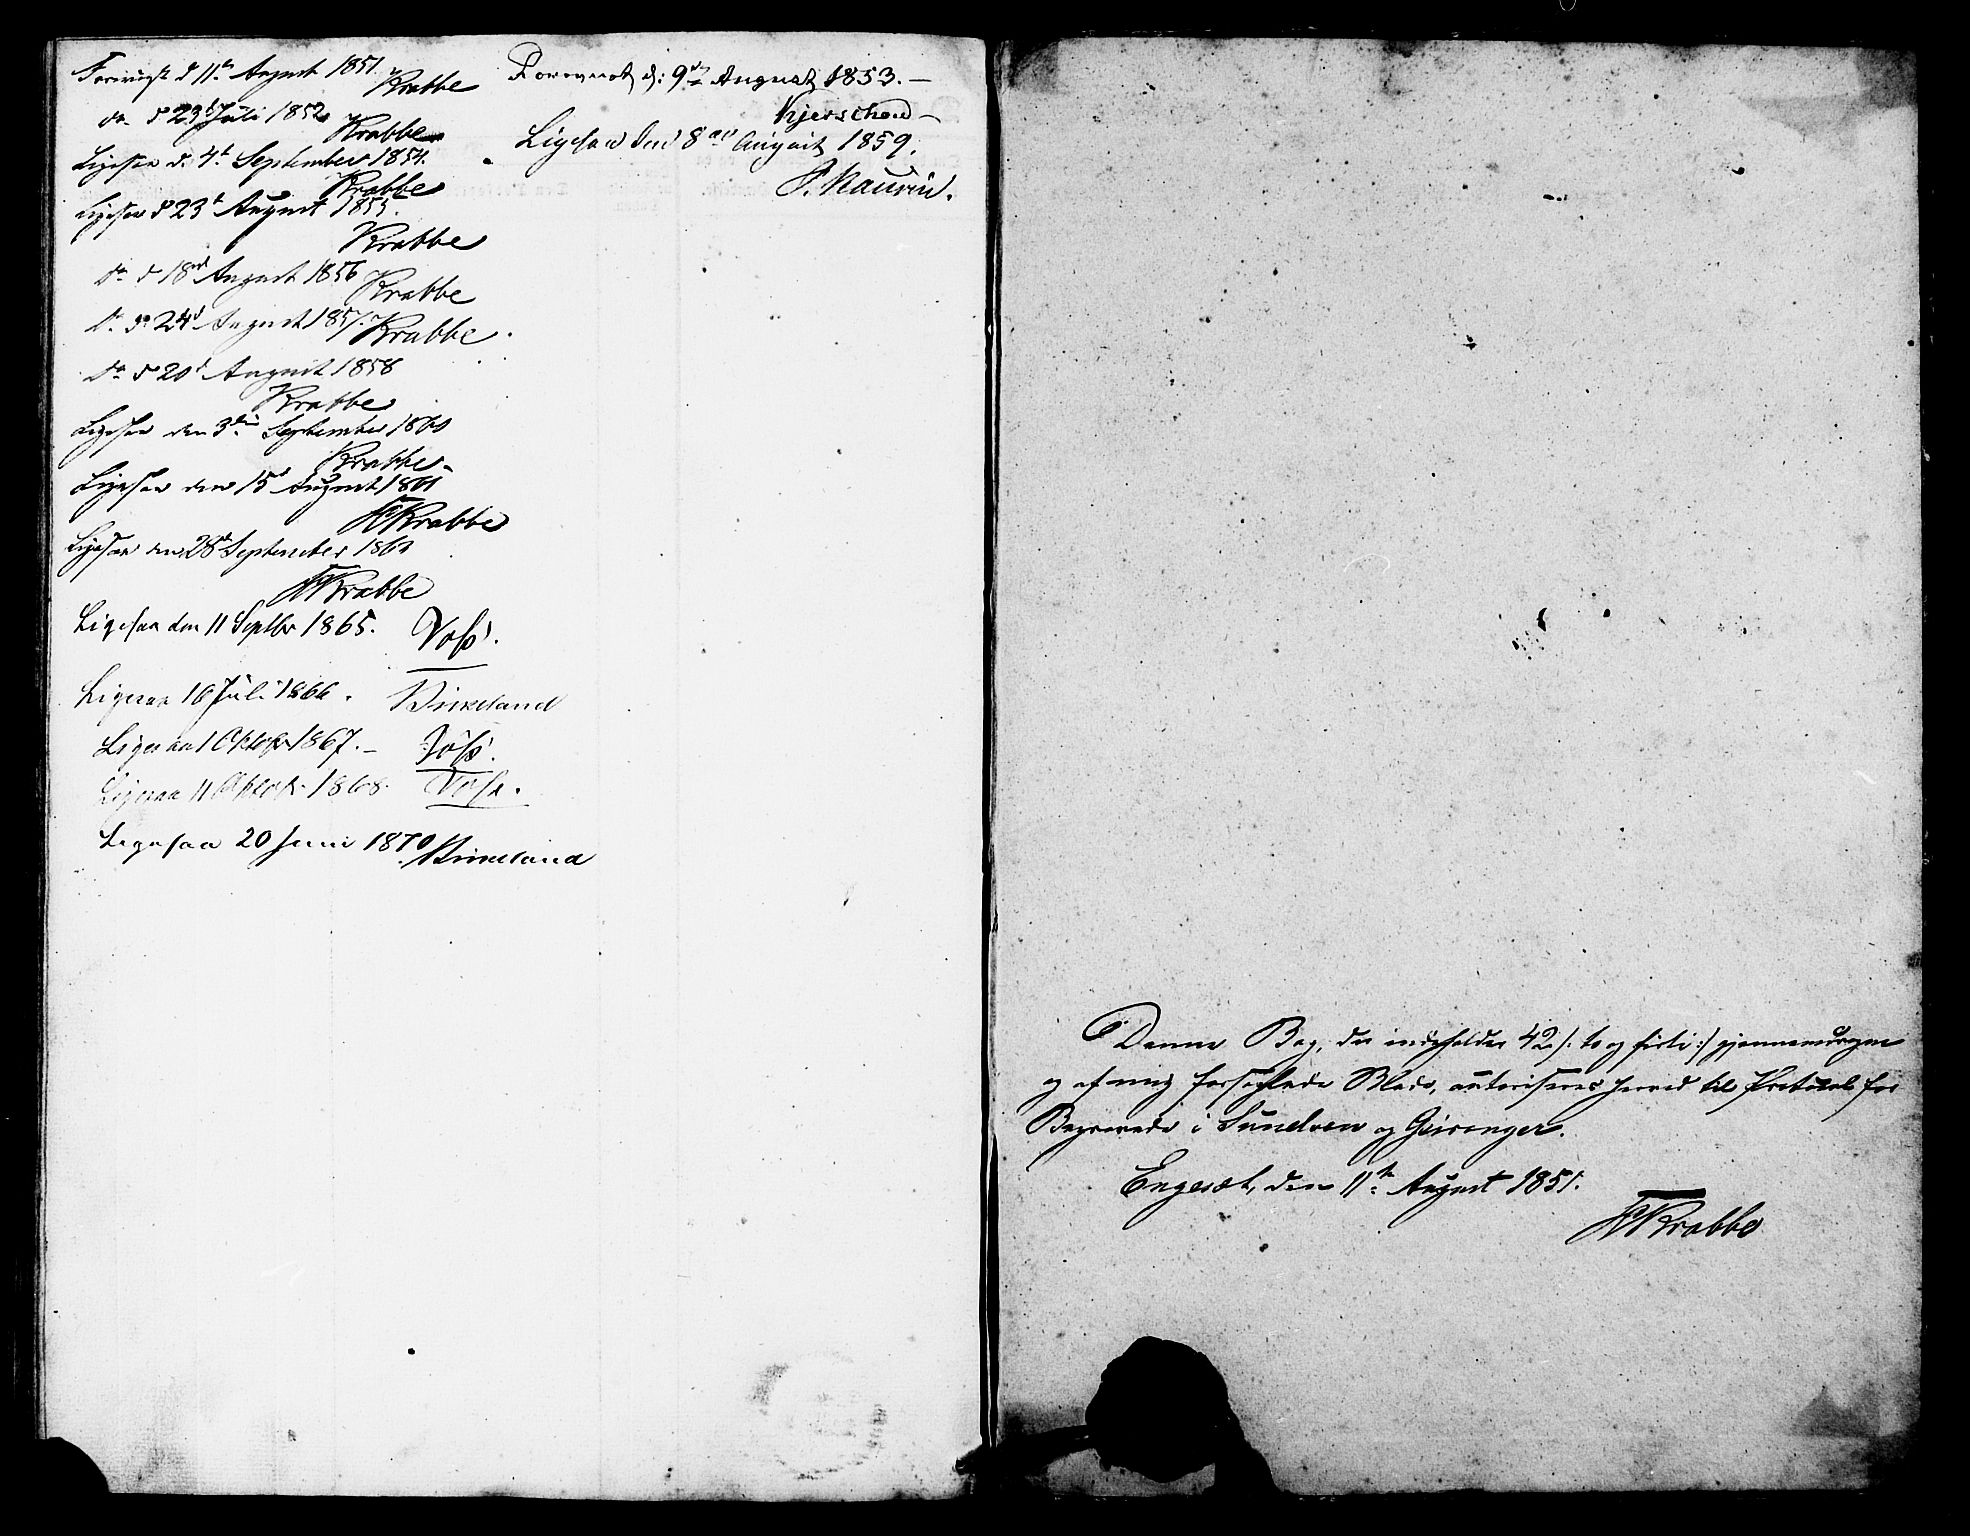 Foreviist d 11te August 1851.
Krabbe
do. d 23d Juli 1852
Krabbe
Ligesaa d. 4t September 1854.
Krabbe
Ligesaa d 23d August 1855.
Krabbe
do d 18d August 1856
Krabbe
do d. 24d August 1857.
Krabbe
do d 20d August 1858
Krabbe
Ligesaa den 3die September 1860
Krabbe
Ligesaa den 15d August 1861
Krabbe
Ligesaa den 28d September 1863
Krabbe
Ligesaa den 11 Septbr 1865. Voss.
Ligesaa 16 Juli 1866. Birkeland
Ligesaa 1 Oktobr 1867. Voss.
Ligesaa 11 Oktobr 1868. Voss.
Ligesaa 20 Juni 1870 Birkeland
Forevist d: 9de August 1853.
Kjerschow
Ligesaa den 8de August 1859.
P. Daurin.
Denne Bog, der indeholder 42 /: to og firti :/ gjennemdragne
og af mig forseglede Blade, autoriseres herved til Protocol for
Begravede i Sundeven og Geiranger.
Engeset, den 11te August 1851.
Krabbe